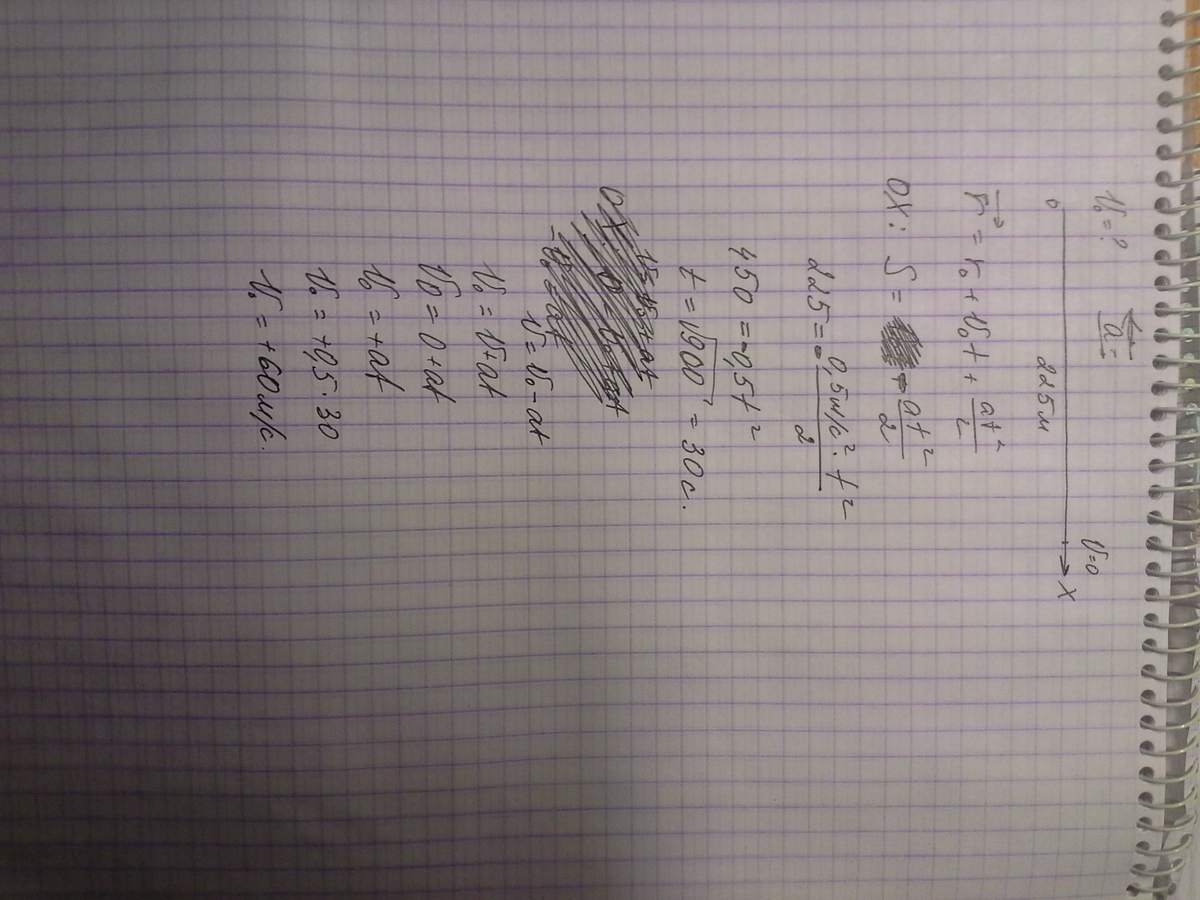 V₀ = ? a = V=0
0 225 м X
r = r₀ + V₀t + at²/2
OX: S = at²/2
225 = - 0,5м/с² · t²/2
450 = -0,5t²
t = √900 = 30 с.
V = V₀ - at
V₀ = V + at
V₀ = 0 + at
V₀ = + at
V₀ = + 0,5 · 30
V₀ = + 60 м/с.